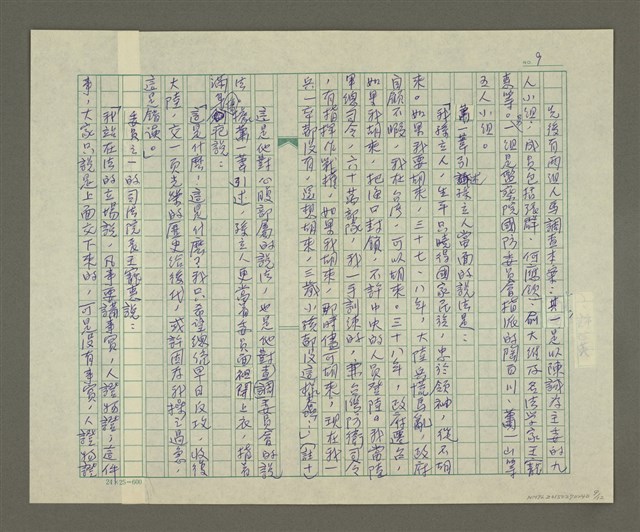 9
先後有兩組人馬調查本案：其一是以陳誠為主委的九
人小組，成員包括張群、何應欽、俞大維及名法學家王寵
惠等。又一組是監察院國防委員會指派的陶百川、蕭一山等
五人小組。
蕭一葦引述孫立人當面的說法是：
「我孫立人，生平只曉得國家民族，忠於領袖，從不胡
來。如果我要胡來，三十七、八年，大陸兵荒馬亂，政府
自顧不暇，我在台灣，可以胡來。三十八年，政府遷台，
如果我胡來，把海口封鎖，不許中央的人員登陸。我當陸
軍總司令，六十萬部隊，我一手訓練的，兼台灣防衛司令
，有指揮作戰權，如果我胡來，那時儘可胡來，現在我一
兵一卒都沒有，還想胡來，三歲小孩都沒這樣蠢…」（註十
這是他對心腹部屬的說法，也是他對調查委員會的說
法。據蕭一葦引述，孫立人更當著委員面袒開上衣，指著
滿身疤說：
「這是什麼，這是什麼？我只希望總統早日反攻，收復
大陸，交一頁光榮的歷史給後代，或許因為我操之過急，
這是錯誤。」
委員之一的司法院長王寵惠說：
「我站在法的立場說，凡事要講事實，人證物證；這件
事，大家只說是上面交下來的，可是沒有事實，人證物證
24×25=600